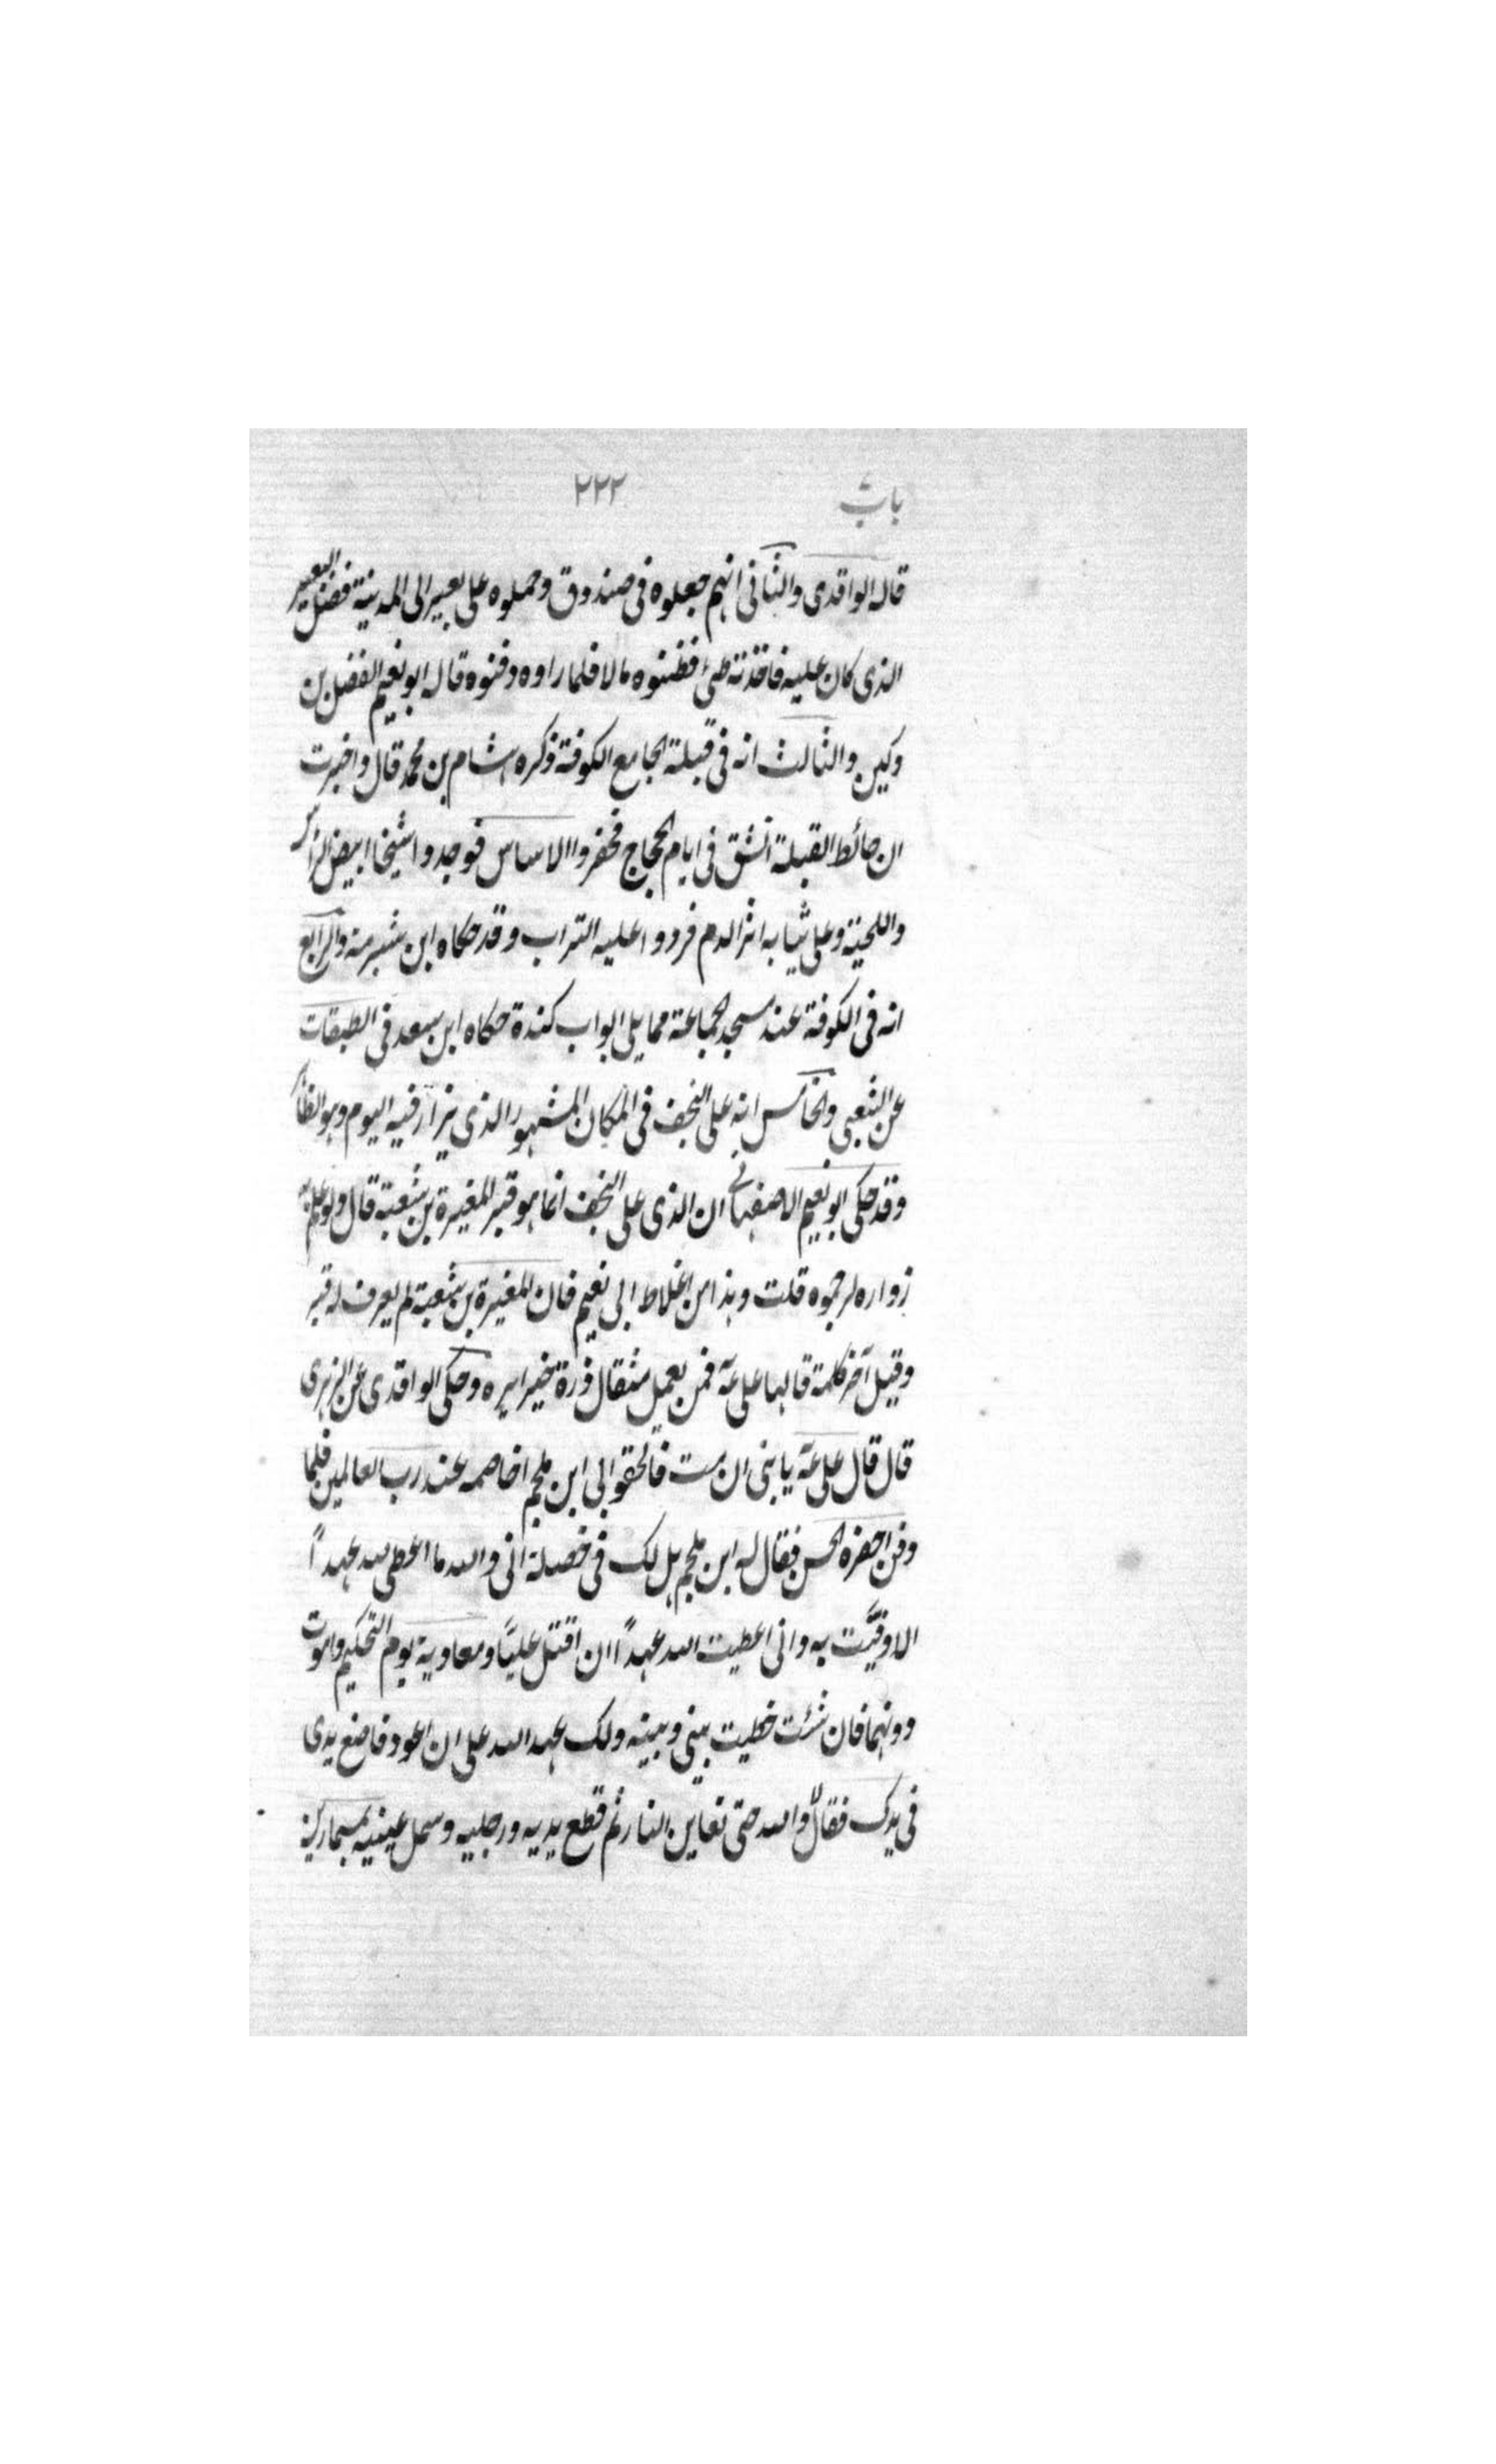 باب ٢٢٢
قاله الواقدى والثانى انهم جعلوه فى صندوق وحملوه على بعير الى المدينة فضل البعير
الذى كان عليه فاخذته طئ فظنوه مالا فلما راوه دفنوه قاله ابو نعيم الفضل بن
دكين والثالث انه فى قبلة الجامع الكوفة ذكره هشام بن محمد قال واخبرت
ان حائط القبلة انشق فى ايام الحجاج فحفروا الاساس فوجدوا شيخا ابيض الراس
واللحية وعلى ثيابه اثر الدم فردوا عليه التراب وقد حكاه ابن شبرمة والرابع
انه فى الكوفة عند مسجد الجماعة مما يلى ابواب كندة حكاه ابن سعد فى الطبقات
عن الشعبى والخامس انه على النجف فى المكان المشهور الذى يزار فيه اليوم وهو الظاهر
وقد حكى ابو نعيم الاصفهانى ان الذى على النجف انما هو قبر المغيرة بن شعبة قال ولو علم به
زواره لرجموه قلت وهذا من اغلاط ابى نعيم فان المغيرة بن شعبة لم يعرف له قبر
وقيل آخر كلمة قالها على عه فمن يعمل مثقال ذرة خيرا يره وحكى الواقدى عن الزهرى
قال قال على عه يا بنى ان مت فالحقوا بى ابن ملجم اخاصمه عند رب العالمين فلما
دفن احضره الحسن فقال له ابن ملجم هل لك فى خصلة انى والله ما اعطى لله عهداً
الا وفيَّت به وانى اعطيت الله عهداً ان اقتل عليًا ومعاوية يوم التحكيم واموت
دونهما فان شئت خليت بينى وبينه ولك عهد الله على ان اعود فاضع يدى
فى يدك فقال لا والله حتى تعاين النار ثم قطع يديه ورجليه وسمل عينيه بمسمارين